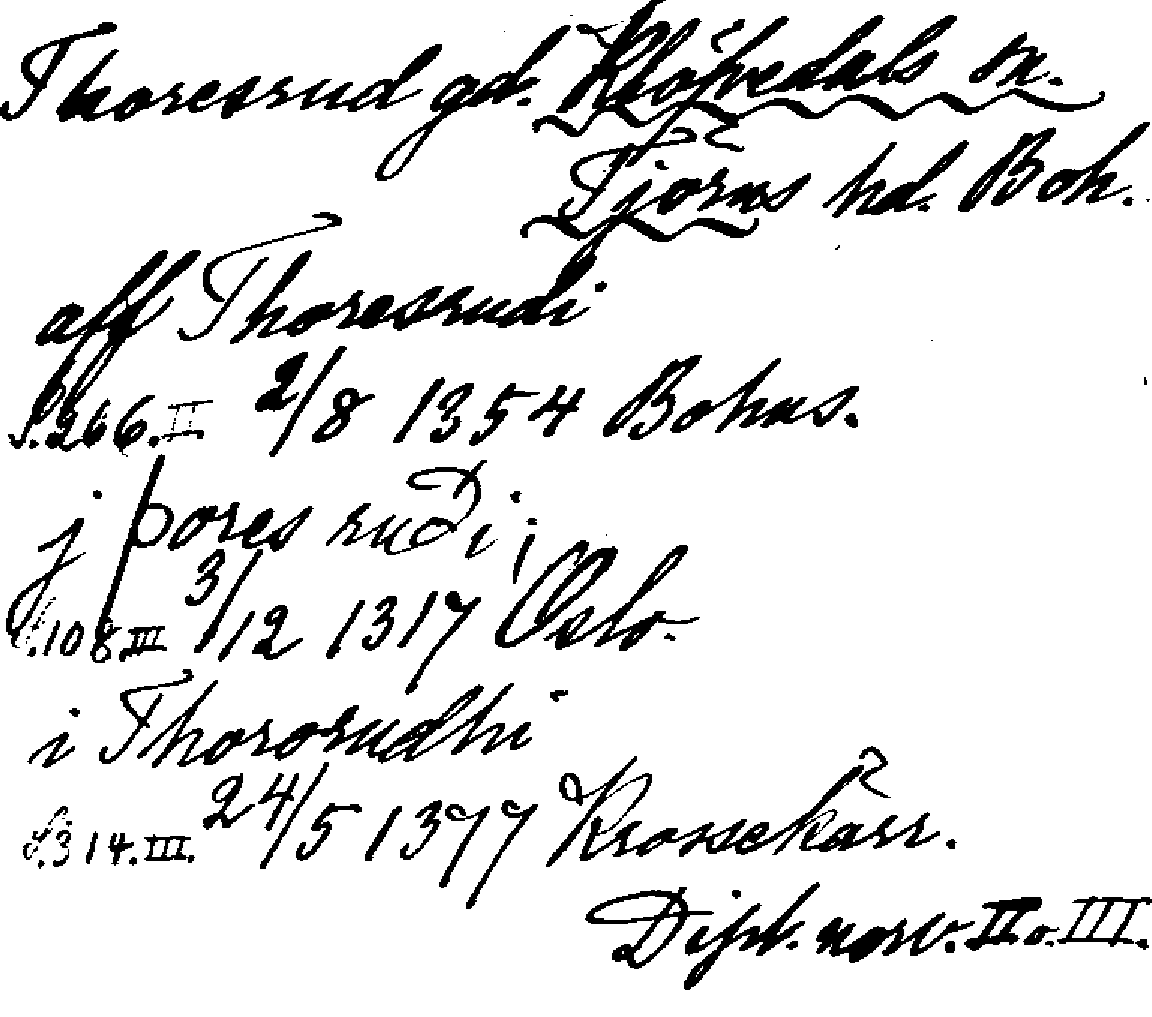 Thoresrud gd. Klövedals sn.
Tjörns hd. Boh.
aff Thoresrudi
S. 266. II 2/8 1354 Bohus.
j þores rudi;
S. 108. III 3/12 1317 Oslo.
i Thororudhi
S. 314. III. 24/5 1377 Krossekärr.
Dipl. norv. II o. III.